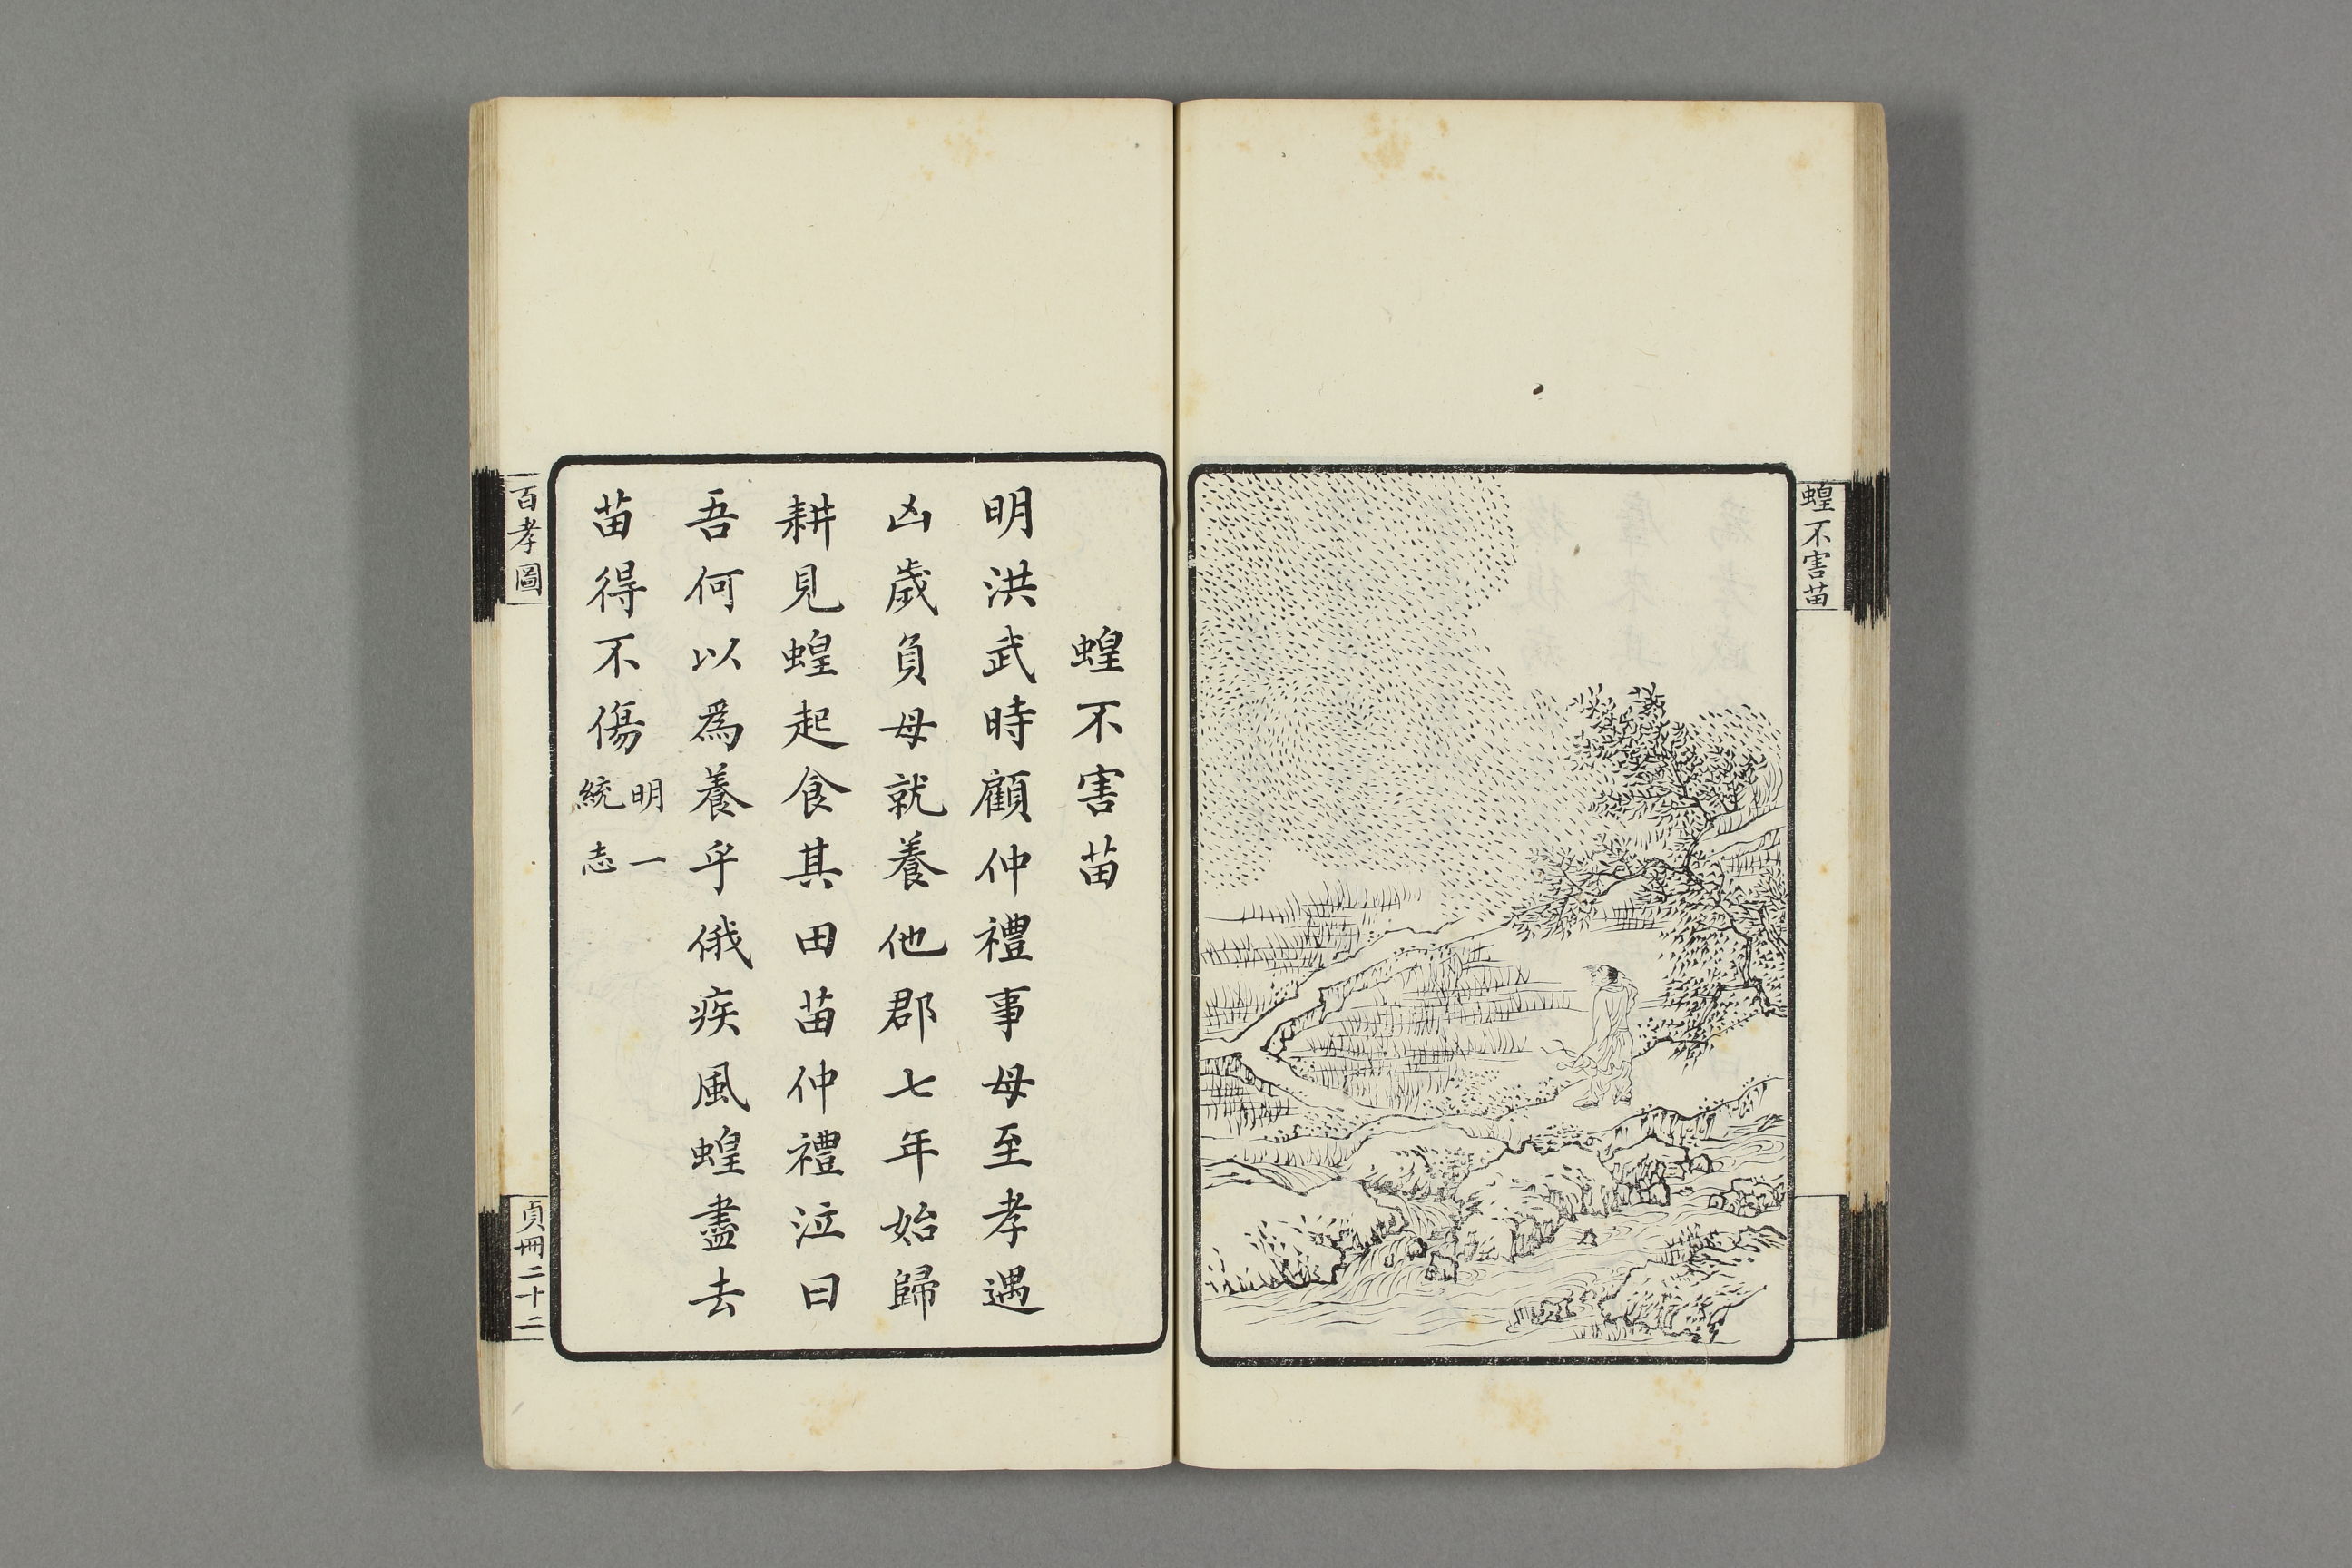 蝗不害苗
蝗不害苗
明洪武時顧仲禮事母至孝遇
凶歲負母就養他郡七年始歸
耕見蝗起食其田苗仲禮泣曰
吾何以為養乎俄疾風蝗盡去
苗得不傷
明一
統志
百孝圖
貞冊二十二